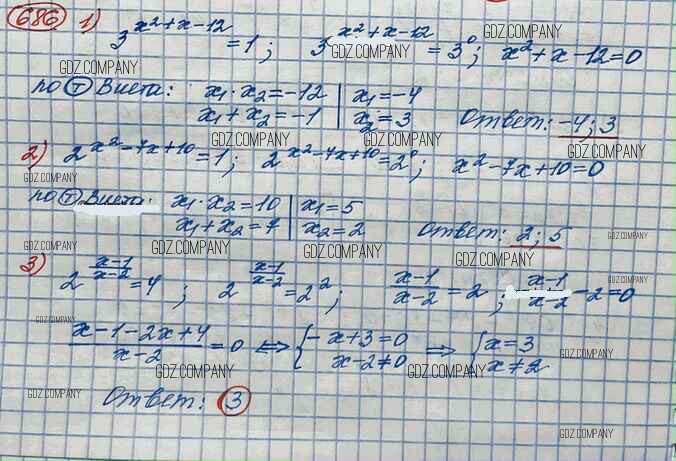 686 1) 3^(x²+x-12) = 1; 3^(x²+x-12) = 3⁰; x²+x-12=0
GDZ.COMPANY GDZ.COMPANY GDZ.COMPANY GDZ.COMPANY
по Т Виета: x₁·x₂=-12 | x₁=-4
x₁+x₂=-1 | x₂=3 Ответ: -4; 3
GDZ.COMPANY GDZ.COMPANY GDZ.COMPANY
2) 2^(x²-7x+10) = 1; 2^(x²-7x+10) = 2⁰; x²-7x+10=0
GDZ.COMPANY GDZ.COMPANY GDZ.COMPANY
по Т Виета: x₁·x₂=10 | x₁=5
x₁+x₂=7 | x₂=2 Ответ: 2; 5
GDZ.COMPANY GDZ.COMPANY GDZ.COMPANY GDZ.COMPANY GDZ.COMPANY
3) 2^((x-1)/(x-2)) = 4; 2^((x-1)/(x-2)) = 2²; (x-1)/(x-2) = 2; (x-1)/(x-2) - 2 = 0
GDZ.COMPANY GDZ.COMPANY
(x-1-2x+4)/(x-2) = 0 ⇔ { -x+3=0 x-2≠0 ⇒ { x=3 x≠2
GDZ.COMPANY GDZ.COMPANY GDZ.COMPANY
Ответ: 3
GDZ.COMPANY GDZ.COMPANY